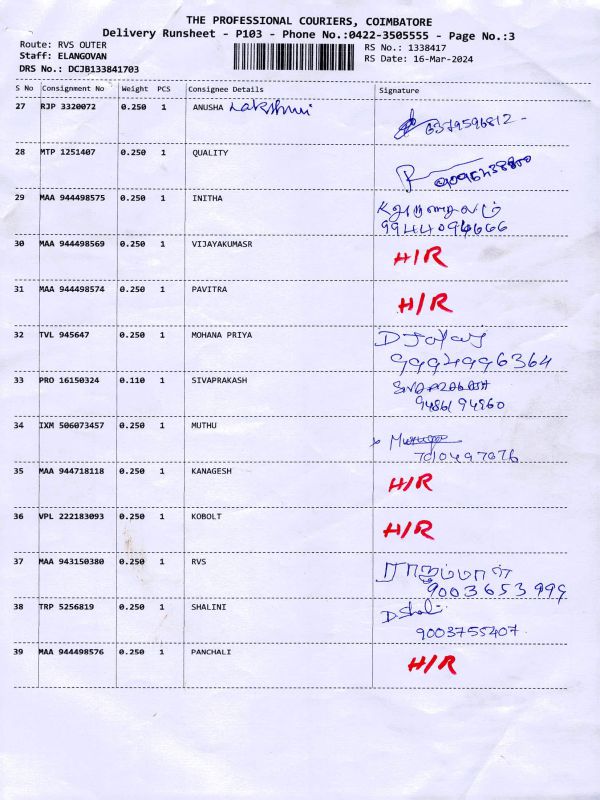 THE PROFESSIONAL COURIERS, COIMBATORE
Delivery Runsheet - P103 - Phone No.:0422-3505555 - Page No.:3
Route: RVS OUTER
RS No.: 1338417
Staff: ELANGOVAN
RS Date: 16-Mar-2024
DRS No.: DCJB133841703
S No Consignment No Weight PCS Consignee Details Signature
27 RJP 3320072 0.250 1 ANUSHA Lakshmi
6379596812
28 MTP 1251407 0.250 1 QUALITY
29 MAA 944498575 0.250 1 INITHA
9944094666
30 MAA 944498569 0.250 1 VIJAYAKUMASR H/R
31 MAA 944498574 0.250 1 PAVITRA H/R
32 TVL 945647 0.250 1 MOHANA PRIYA
9994996364
33 PRO 16150324 0.110 1 SIVAPRAKASH
9486194960
34 IXM 506073457 0.250 1 MUTHU
7010497076
35 MAA 944718118 0.250 1 KANAGESH H/R
36 VPL 222183093 0.250 1 KOBOLT H/R
37 MAA 943150380 0.250 1 RVS ராஜம்மாள்
9003653999
38 TRP 5256819 0.250 1 SHALINI
9003755407
39 MAA 944498576 0.250 1 PANCHALI H/R